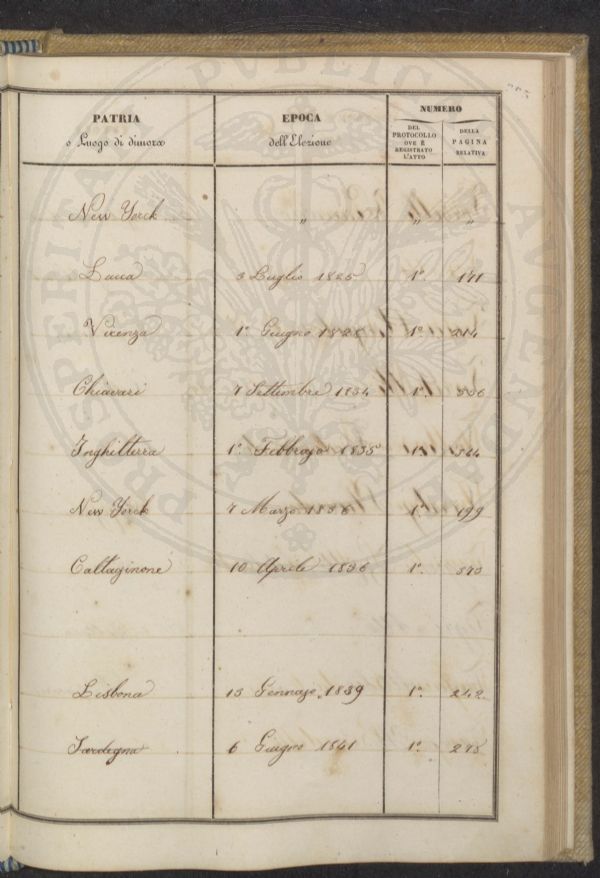 PATRIA
o Luogo di dimora
EPOCA
dell'Elezione
NUMERO
DEL
PROTOCOLLO
OVE È
REGISTRATO
L'ATTO
DELLA
PAGINA
RELATIVA
New Yorck " " "
Lucca 3 Luglio 1825 1º 171
Vicenza 1º Giugno 1828 1º 214
Chiavari 7 Settembre 1834 1º 336
Inghilterra 1º Febbrajo 1835 1º 344
New Yorck 7 Marzo 1836 1º 199
Caltaginone 10 Aprile 1836 1º 373
Lisbona 13 Gennajo 1839 1º 242
Sardegna 6 Giugno 1841 1º 278
PROSPERITATI PUBLICAE AUGENDAE